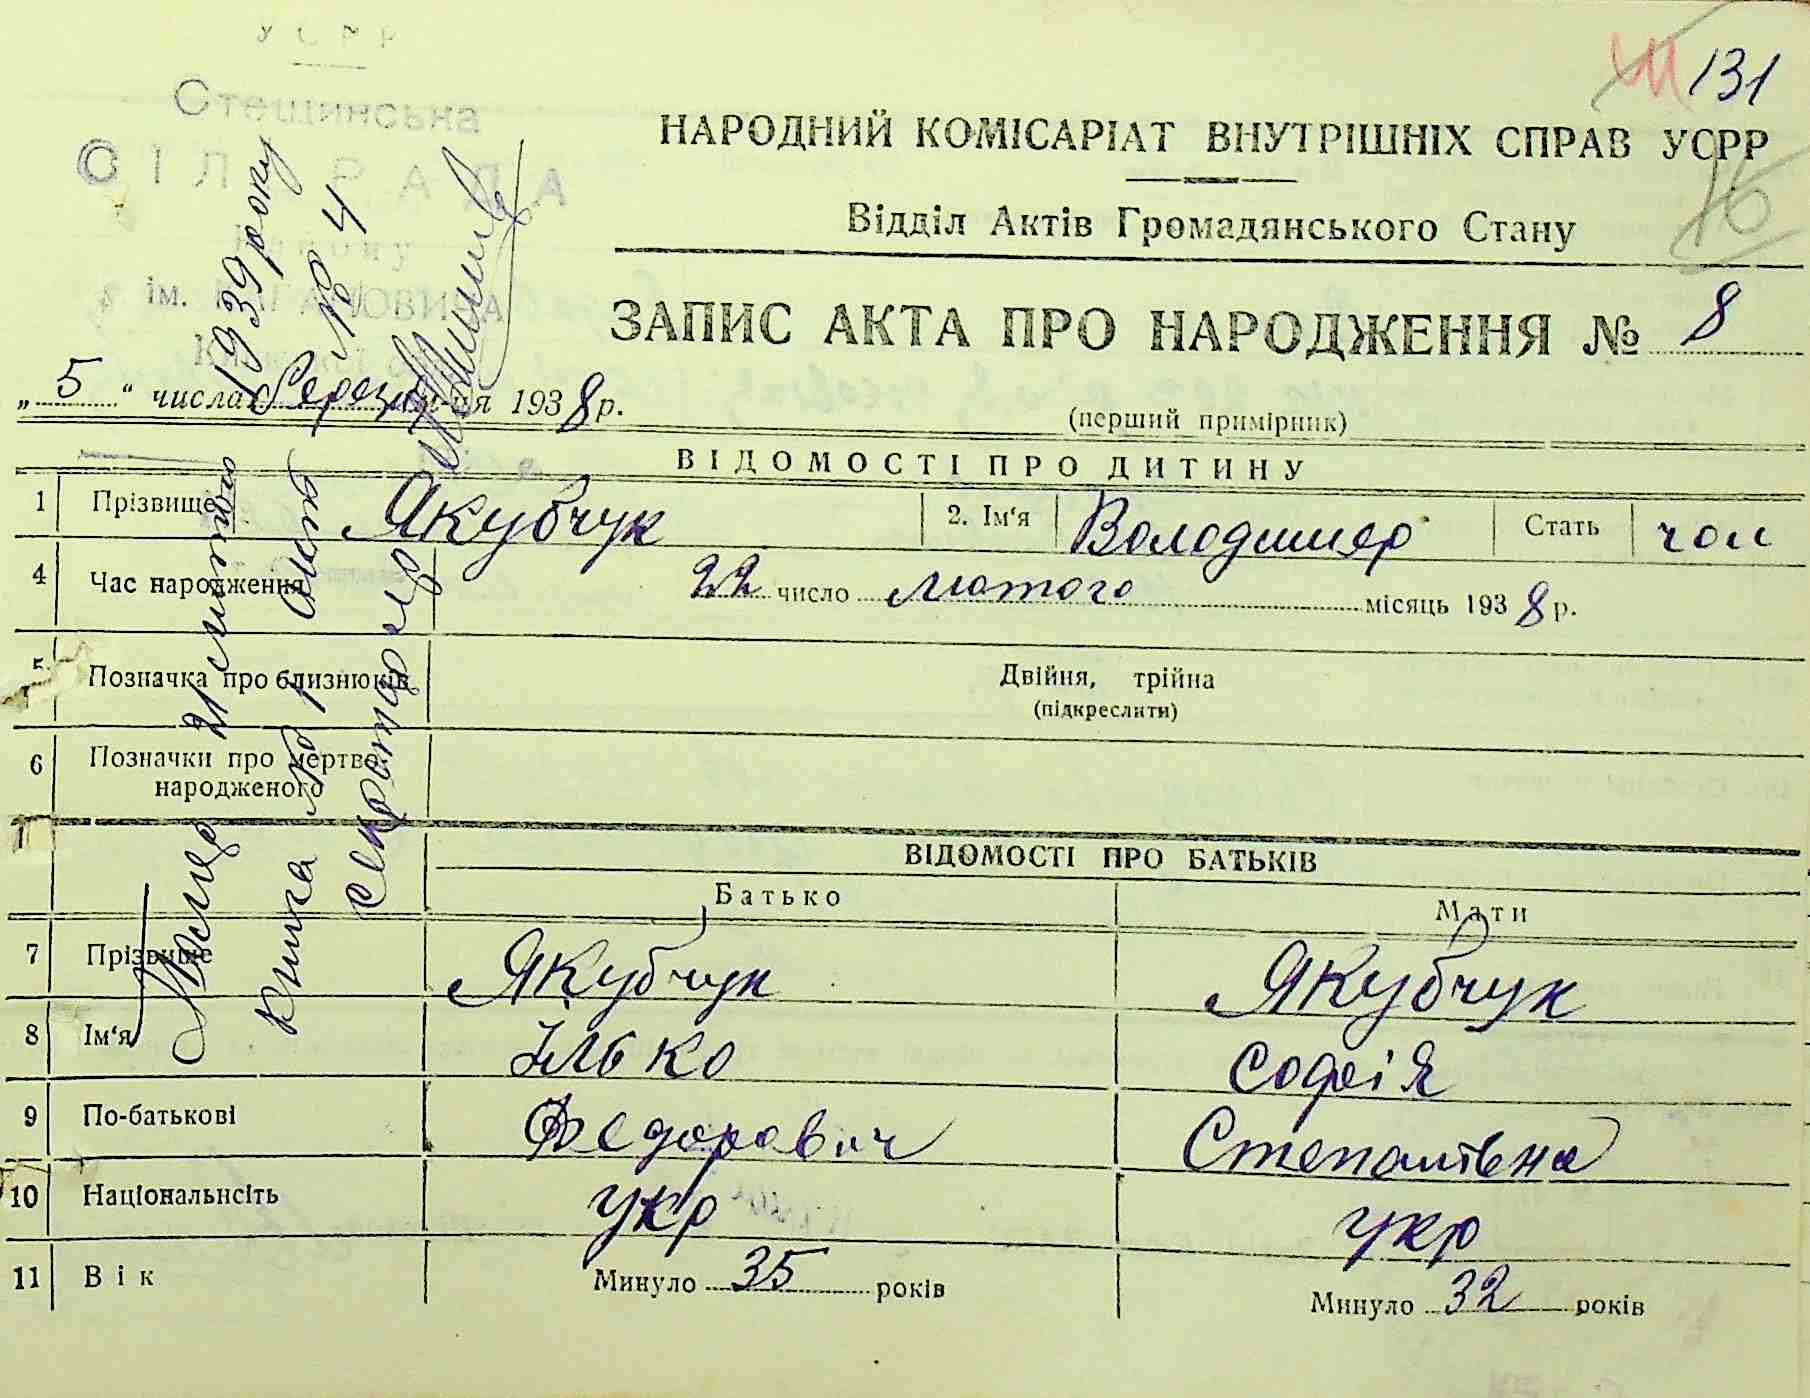 УСРР
Стещинська
СІЛЬРАДА
Району
ім. КАГАНОВИЧА
131
НАРОДНИЙ КОМІСАРІАТ ВНУТРІШНІХ СПРАВ УСРР
16
Відділ Актів Громадянського Стану
ЗАПИС АКТА ПРО НАРОДЖЕННЯ № 8
„5“ числа березня м-ця 1938 р.
(перший примірник)
ВІДОМОСТІ ПРО ДИТИНУ
1 Прізвище Якубчук 2. Ім‘я Володимир Стать чол
4 Час народження 22 число лютого місяць 1938 р.
5 Позначка про близнюків Двійня, трійна
(підкреслити)
6 Позначки про мертво-
народженого
ВІДОМОСТІ ПРО БАТЬКІВ
Батько Мати
7 Прізвище Якубчук Якубчук
8 Ім‘я Ілько Софія
9 По-батькові Федорович Степанівна
10 Національнсіть укр укр
11 Вік Минуло 35 років Минуло 32 років
Помер 21 лютого 1939 року
книга № 1 акт № 4
секретар